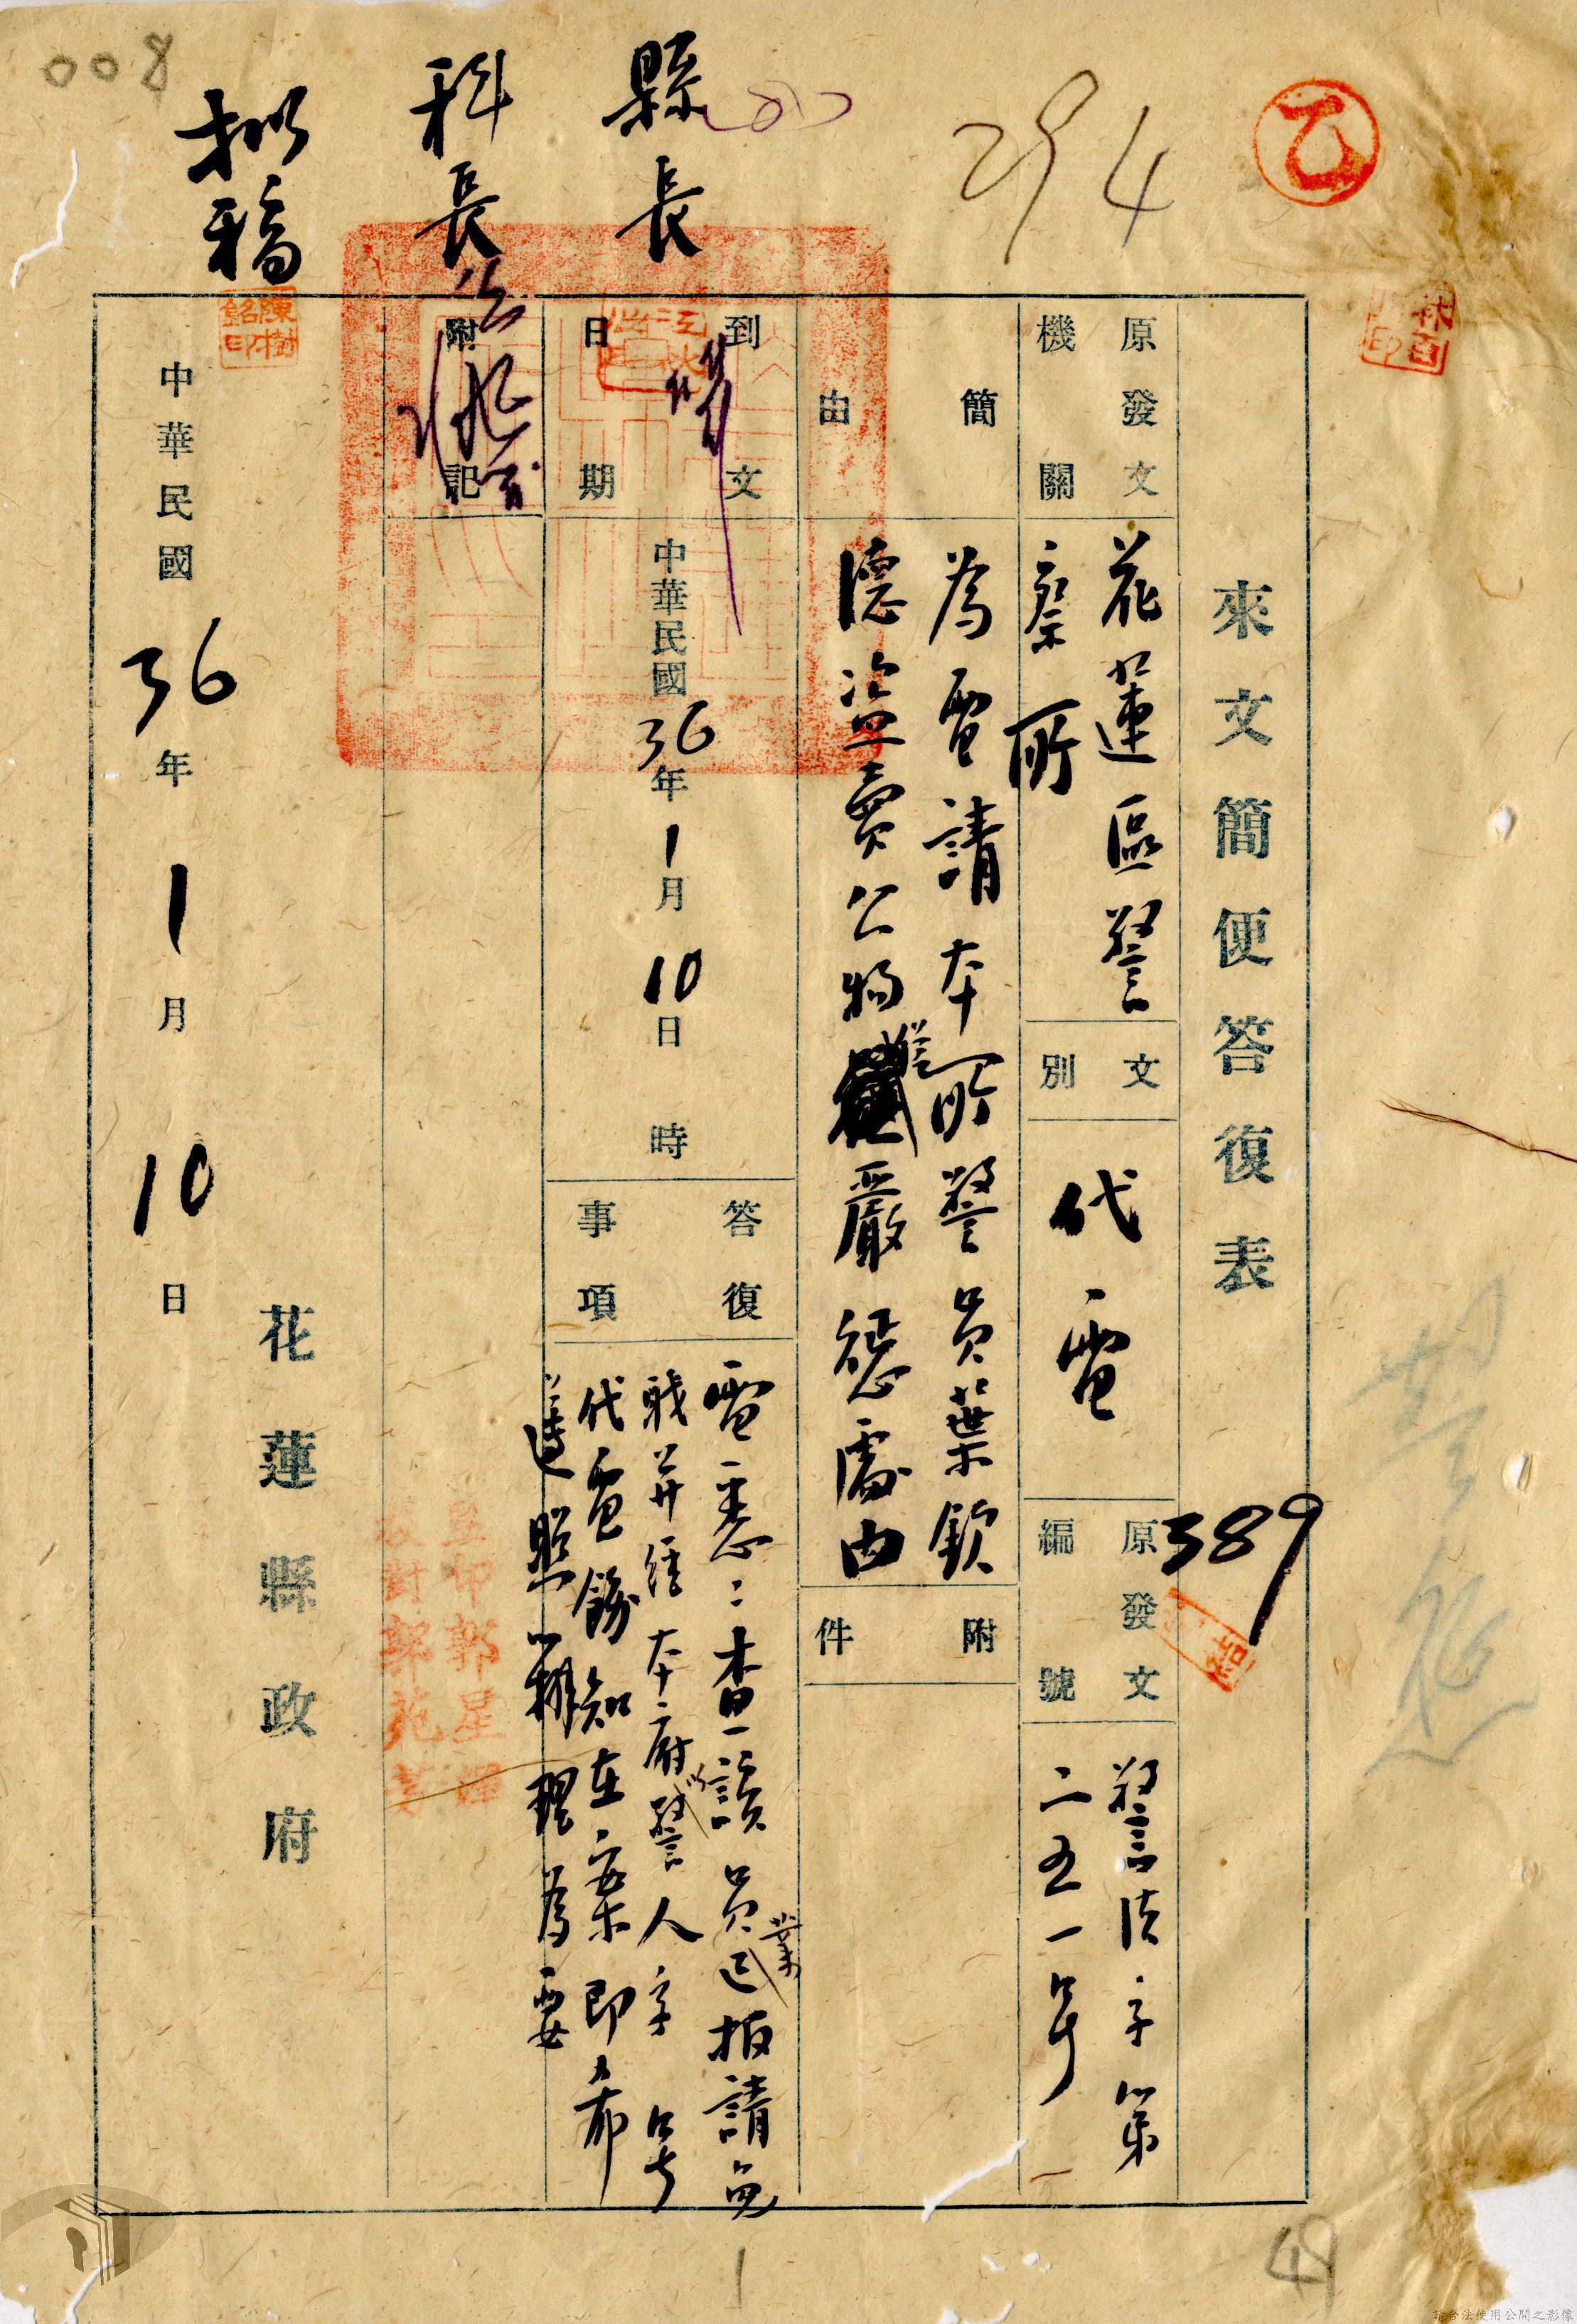 008
294
乙
縣長
科長
擬稿
陳樹銘印
來文簡便答復表
389
原發文
機關
花蓮區警
察所
文別
代電
原發文
編號
警法字第
二五一号
簡由
為電請本所警員葉欽
德盜賣公物從嚴懲處由
附件
到文
日期
中華民國36年1月10日時
答復
事項
電悉：查該員業已报請免
職并經本府以警人字 號
代電飭知在案即希
遵照辦理為要
附記
監印郭星
校對郭
花蓮縣政府
中華民國36年1月10日
49
請合法使用公開之影像